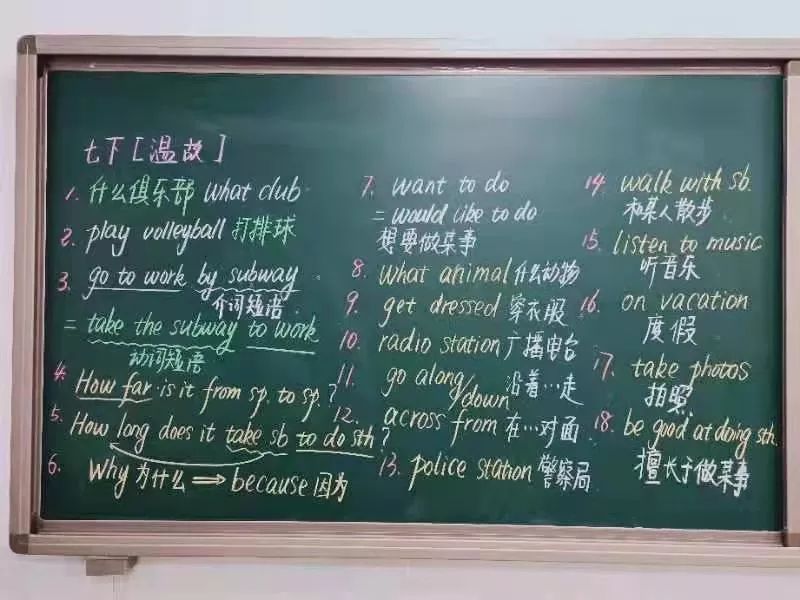 七下［温故］
1. 什么俱乐部 what club
2. play volleyball 打排球
3. go to work by subway
介词短语
= take the subway to work
动词短语
4. How far is it from sp. to sp.?
5. How long does it take sb to do sth?
6. Why 为什么 ⇒ because 因为
7. want to do
= would like to do
想要做某事
8. What animal 什么动物
9. get dressed 穿衣服
10. radio station 广播电台
11. go along/down 沿着…走
12. across from 在…对面
13. police station 警察局
14. walk with sb.
和某人散步
15. listen to music
听音乐
16. on vacation
度假
17. take photos
拍照
18. be good at doing sth.
擅长于做某事